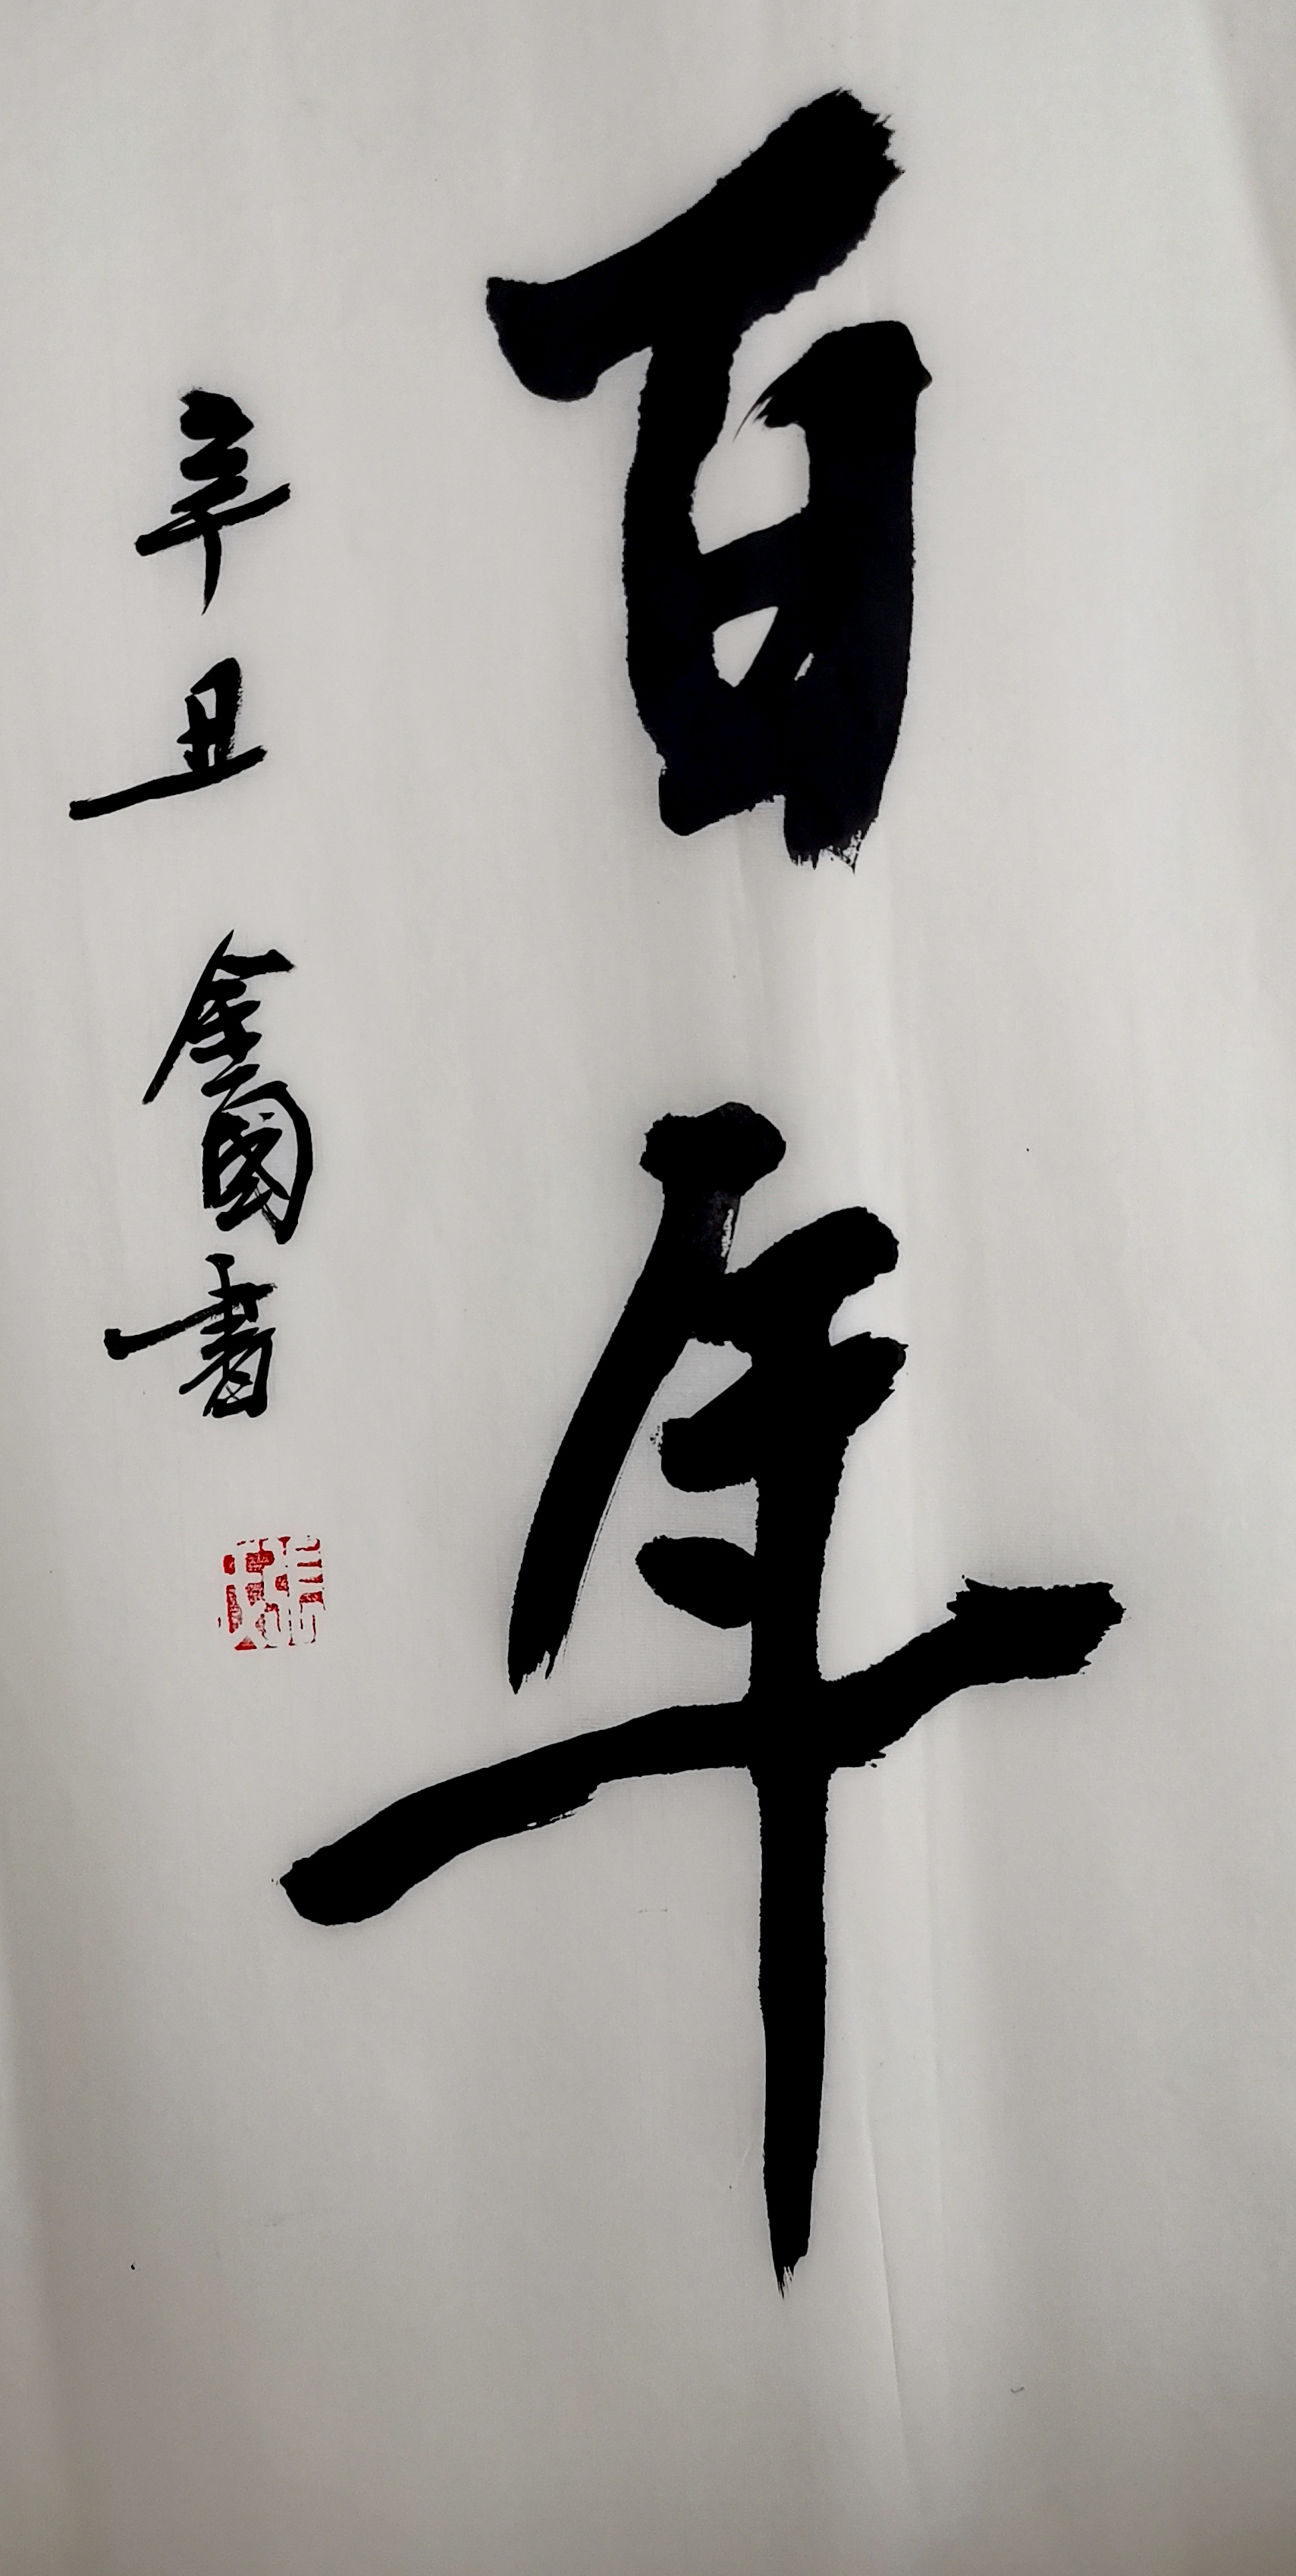 百年
辛丑 金國書